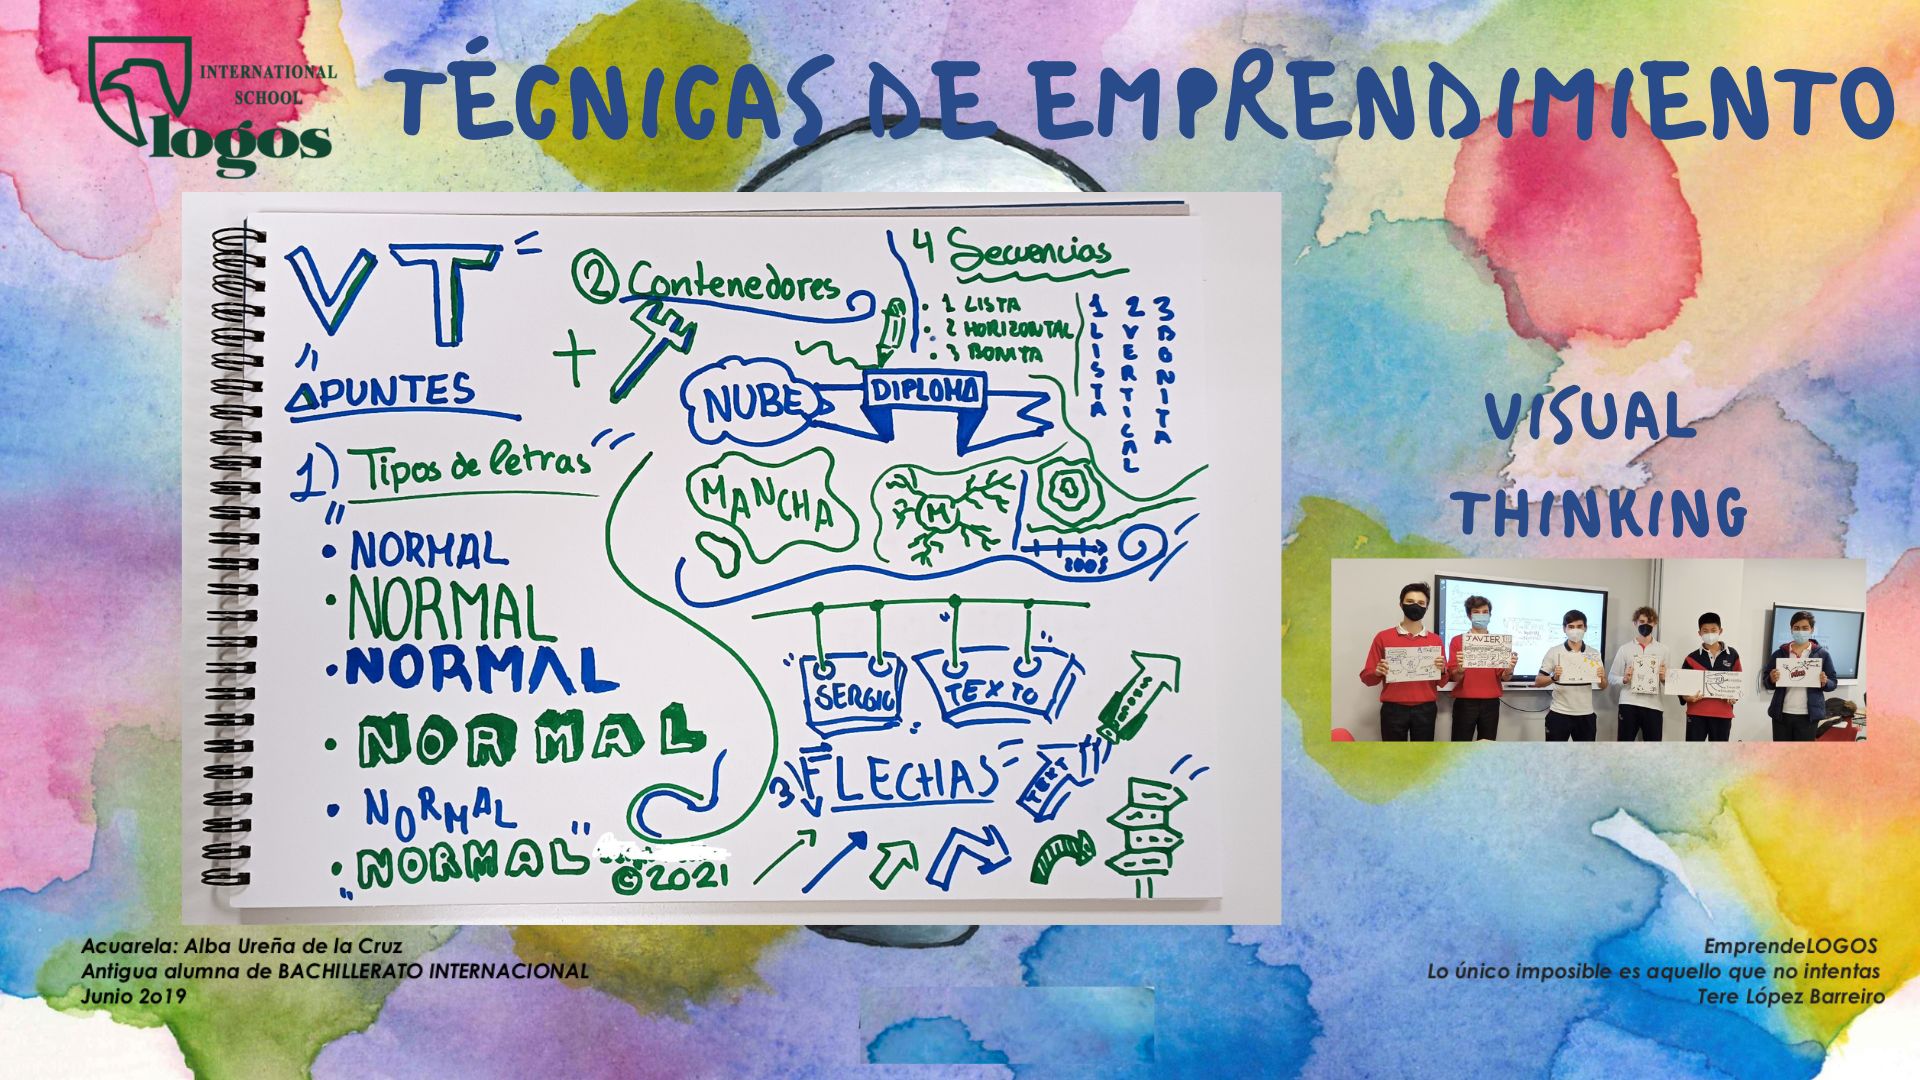 INTERNATIONAL
SCHOOL
logos
TÉCNICAS DE EMPRENDIMIENTO
VT
APUNTES
1) Tipos de letras
NORMAL
NORMAL
NORMAL
NORMAL
NORMAL
NORMAL
©2021
2 Contenedores
NUBE
DIPLOMA
MANCHA
M
2005
SERGIO
TEXTO
3) FLECHAS
TEXT
4 Secuencias
1 LISTA
2 HORIZONTAL
3 BONITA
1 LISTA
2 VERTICAL
3 BONITA
VISUAL
THINKING
JAVIER
Acuarela: Alba Ureña de la Cruz
Antigua alumna de BACHILLERATO INTERNACIONAL
Junio 2o19
EmprendeLOGOS
Lo único imposible es aquello que no intentas
Tere López Barreiro